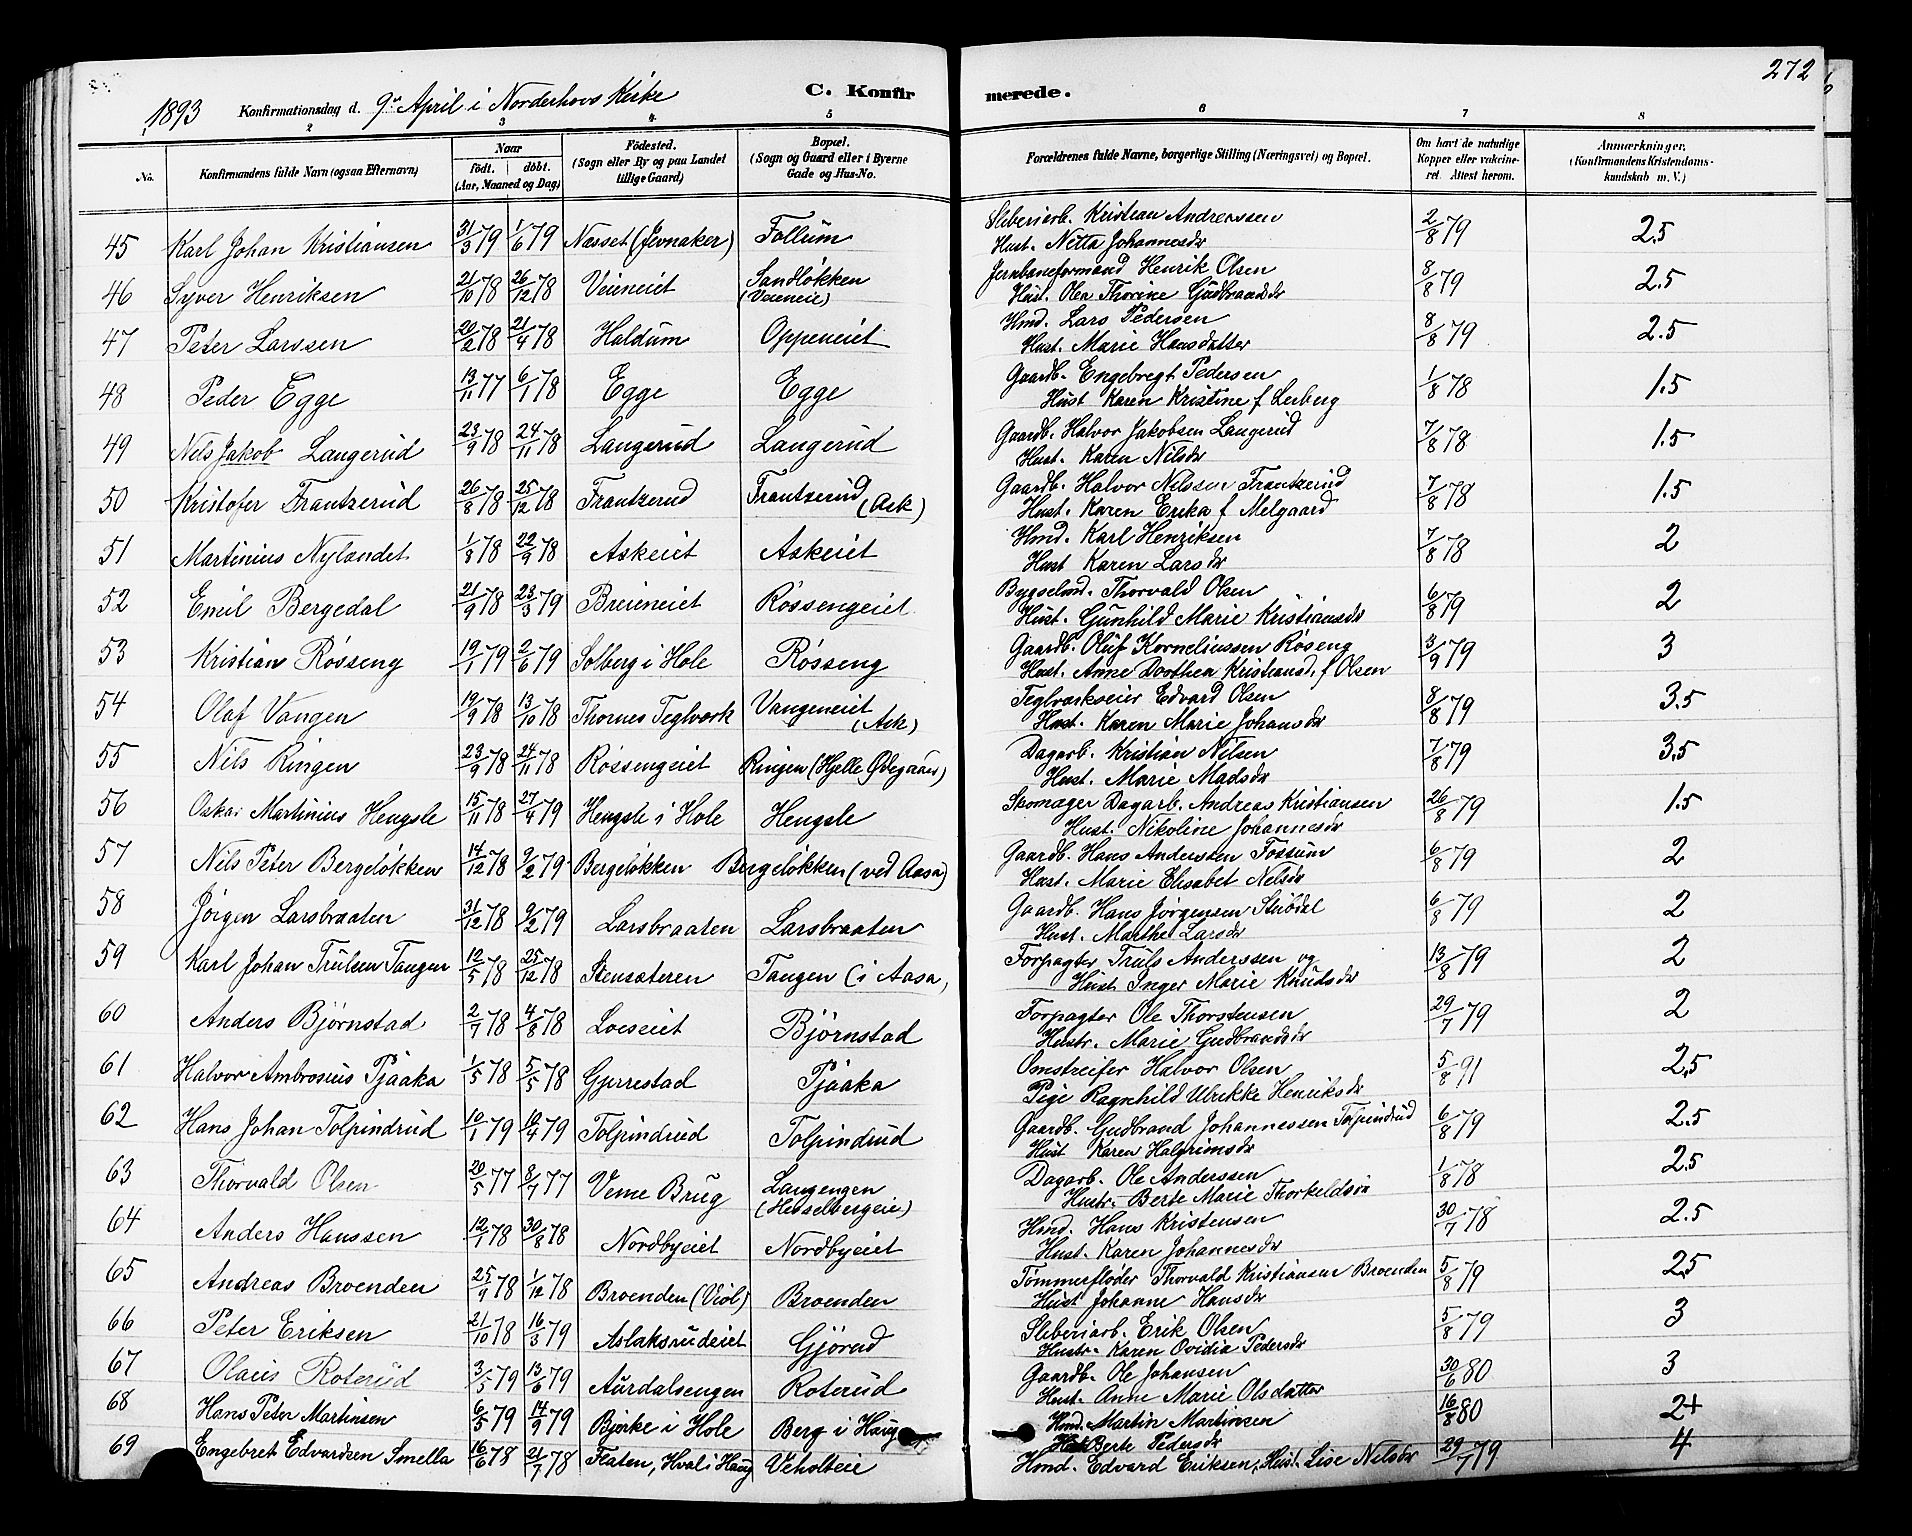 272
1893 Konfirmationsdag d. 9de April i Norderhovs Kirke C. Konfirmerede.
2 3 4 5 6 7 8
No. Konfirmandens fulde Navn (ogsaa Efternavn) Naar født. døbt. (Aar, Maaned og Dag) Fødested. (Sogn eller By og paa Landet tillige Gaard) Bopæl. (Sogn og Gaard eller i Byerne Gade og Hus-No. Forældrenes fulde Navne, borgerlige Stilling (Næringsvei) og Bopæl. Om havt de naturlige Kopper eller vakcineret. Attest herom. Anmærkninger, (Konfirmandens Kristendomskundskab m. V.)
45 Karl Johan Kristiansen 31/3 79 1/6 79 Næsset (Jevnaker) Follum Sliberiarb. Kristian Anderssen 2/8 79 2.5
Hust. Netta Johannesdr
46 Syver Henriksen 21/10 78 26/12 78 Veieneiet Sandløkken (Veieneie) Jernbaneformand Henrik Olsen 8/8 79 2.5
Hust. Olea Thorine Gudbrandsdr
47 Peter Larssen 20/2 78 21/4 78 Haldum Oppeneiet Hmd. Lars Pedersen 8/8 79 2.5
Hust. Marie Hansdatter
48 Peder Egge 13/11 77 6/1 78 Egge Egge Gaardb. Engebregt Pedersen 1/8 78 1.5
Hust Karen Kristine f Lerberg
49 Nils Jakob Langerud 23/9 78 24/11 78 Langerud Langerud Gaardb. Halvor Jakobsen Langerud 7/8 78 1.5
Hust. Karen Nilsdr
50 Kristofer Frantzerud 26/8 78 25/12 78 Frantzerud Frantzerud (Ask) Gaardb. Halvor Nilssen Frantzerud 7/8 78 1.5
Hust. Karen Erika f Melgaard
51 Martinius Nylandet 1/8 78 22/9 78 Askeiet Askeiet Hmd. Karl Henriksen 7/8 78 2
Hust Karen Larsdr
52 Emil Bergedal 21/9 78 23/3 79 Breieneiet Røssengeiet Bygselmd. Thorvald Olsen 6/8 79 2
Hust. Gunhild Marie Kristiansdr
53 Kristian Røsseng 19/1 79 2/6 79 Solberg i Hole Røsseng Gaardb. Oluf Korneliussen Røseng 3/9 79 3
Hust. Anne Dorthea Kristiansd. f Olsen
54 Olaf Vangen 19/9 78 13/10 78 Thornes Teglværk Vangeneiet (Ask) Teglværkseier Edvard Olsen 8/8 79 3.5
Hust. Karen Marie Johansdr
55 Nils Ringen 23/9 78 24/11 78 Røssengeiet Ringen (Hjelle Ødegaard) Dagarb. Kristian Nilsen 7/8 79 3.5
Hust. Marie Madsdr
56 Oskar Martinius Hengsle 15/11 78 27/4 79 Hengsle i Hole Hengsle Skomager Dagarb. Andreas Kristiansen 26/8 79 1.5
Hust. Nikoline Johannesdr
57 Nils Peter Bergeløkken 14/12 78 9/2 79 Bergeløkken Bergeløkken (ved Aasa) Gaardb. Hans Andersen Fossum 6/8 79 2
Hust. Marie Elisabet Nelsdr
58 Jørgen Larsbraaten 31/12 78 9/2 79 Larsbraaten Larsbraaten Gaardb. Hans Jørgensen Stubdal 6/8 79 2
Hust. Marthe Larsdr
59 Karl Johan Trulsen Tangen 12/5 78 25/12 78 Stensæteren Tangen (i Aasa, Forpagter Truls Anderssen og 13/8 79 2
Hust Inger Marie Knudsdr
60 Anders Bjørnstad 2/7 78 4/8 78 Loeseiet Bjørnstad Forpagter Ole Thorstensen 29/7 79 2
Hustr. Marie Gudbrandsdr
61 Halvor Ambrosius Pjaaka 1/5 78 5/5 78 Gjerrestad Pjaaka Omstreifer Halvor Olsen 5/8 91 2.5
Pige Ragnhild Ulrikke Henriksdr
62 Hans Johan Tolpindrud 10/1 79 10/4 79 Tolpindrud Tolpindrud Gaardb. Gudbrand Johannessen Tolpindrud 6/8 79 2.5
Hust Karen Halgrimsdr
63 Thorvald Olsen 20/5 77 8/7 77 Veme Brug Langengen (Hesselbergeie) Dagarb. Ole Anderssen 1/8 78 2.5
Hustr. Berte Marie Thorkeldsdr
64 Anders Hanssen 12/1 78 30/8 78 Nordbyeiet Nordbyeiet Hmd. Hans Kristensen 30/7 78 2.5
Hust. Karen Johannesdr
65 Andreas Broenden 25/9 78 1/12 78 Broenden (Viol) Broenden Tømmerfløder Thorvald Kristiansen Broenden 5/8 79 2.5
Hust Johanne Hansdr
66 Peter Eriksen 21/10 78 16/3 79 Aslaksrudeiet Gjørud Sliberiarb. Erik Olsen 5/8 79 3
Hustr. Karen Ovidia Pedersdr
67 Olaus Roterud 3/5 79 13/6 79 Aurdalsengen Roterud Gaardb. Ole Johansen 30/6 80 3
Hust. Anne Marie Olsdatter
68 Hans Peter Martinsen 6/5 79 14/9 79 Bjørke i Hole Berg i Haug Hmd. Martin Martinsen 16/8 80 2+
Hust Berte Pedersdr
69 Engebret Edvardsen Smella 16/6 78 21/7 78 Flaten, Hval i Haug Veholteie Hmd. Edvard Eriksen, Hust. Lise Nilsdr 29/7 79 4